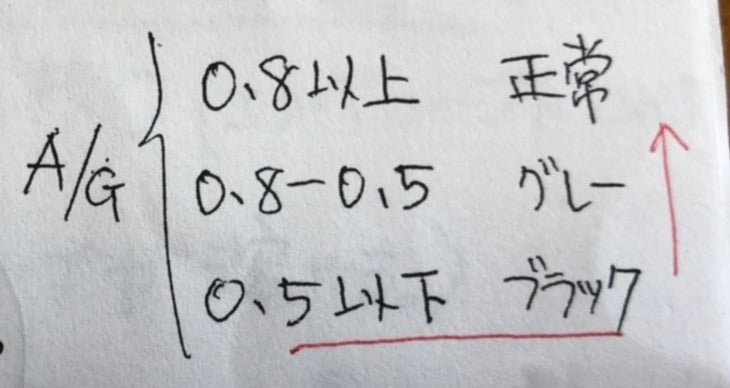 0.8以上 正常
A/G 0.8-0.5 グレー
0.5以下 ブラック